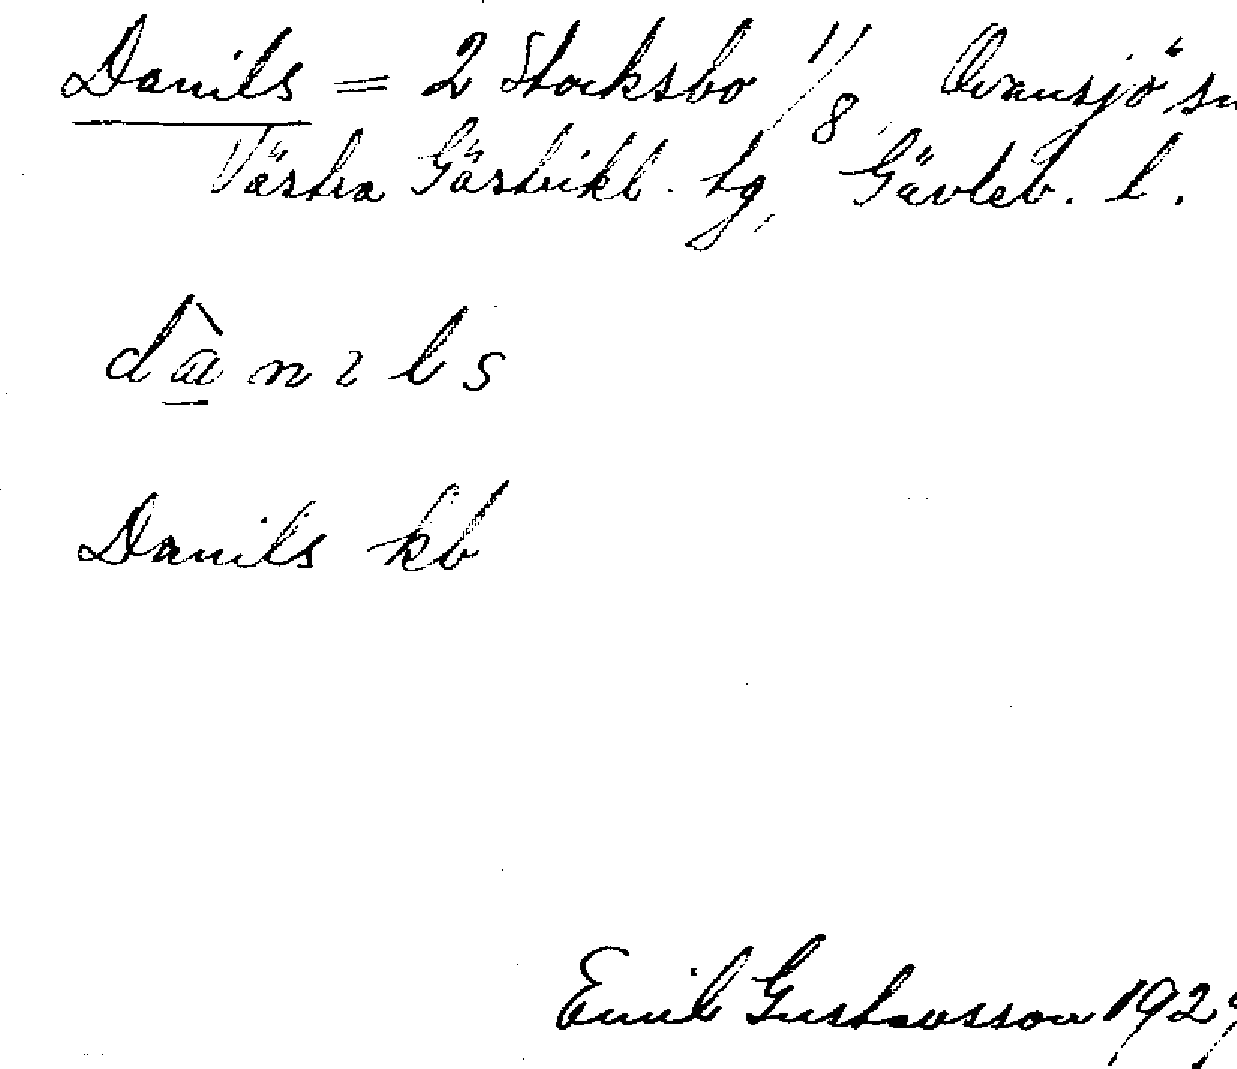 Danils = 2 Stocksbo 1/8 Ovansjö sn
Västra Gästrikl. tg, Gävleb. l.
dànils
Danils kb
Emil Gustavsson 1929